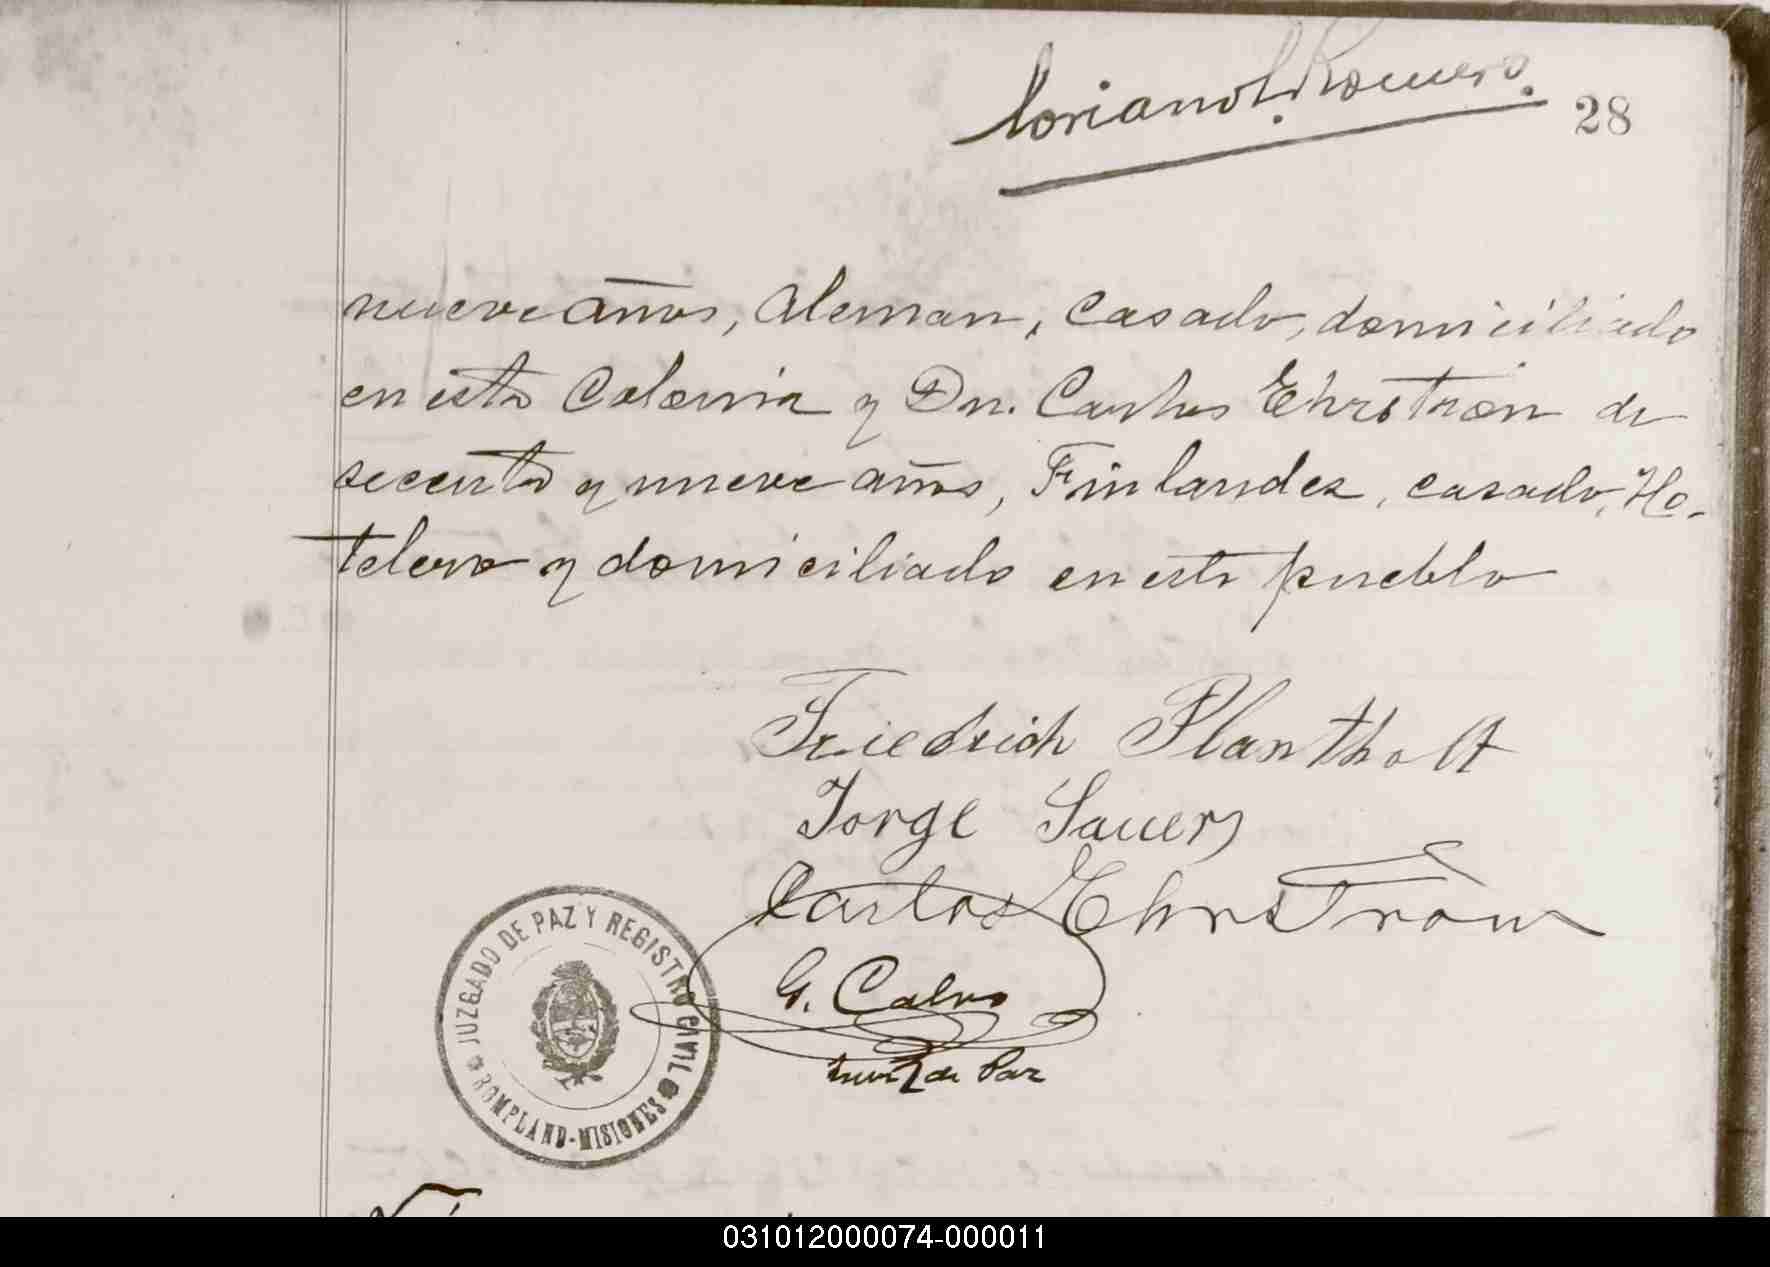 Loriano L. Romero.
28
nueve años, Aleman, casado, domiciliado
en esta Colonia y Dn. Carlos Ehrström de
secenta y nueve años, Finlandez, casado, Ho-
telero y domiciliado en este pueblo
Friedrich Plantholt
Jorge Sauer
Carlos Ehrström
G. Calvo
Juez de Paz
JUZGADO DE PAZ Y REGISTRO CIVIL
BOMPLAND-MISIONES
031012000074-000011